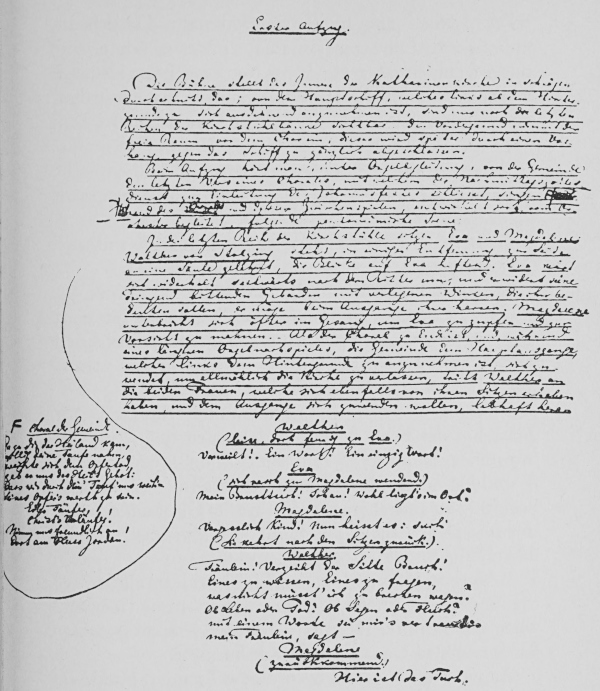 Erster Aufzug.
Die Bühne stellt das Innere der Katharinenkirche in schrägem
Durchschnitt dar; von dem Hauptschiff, welches links ab dem Hinter-
grunde zu sich ausdehnend anzunehmen ist, sind nur noch die letzten
Reihen der Kirchstühlbänke sichtbar: den Vordergrund nimmt der
freie Raum vor dem Chore ein; dieser wird später durch einen Vor-
hang gegen das Schiff zu gänzlich abgeschlossen.
Beim Aufzug hört man, unter Orgelbegleitung, von der Gemeinde
den letzten Vers eines Chorales, mit welchem der Nachmittagsgottes-
dienst zur Einleitung des Johannisfestes schliesst, singen
während des und dessen Zwischenspielen, entwickelt sich, vom Or-
chester begleitet, folgende pantomimische Scene.
In der letzten Reihe der Kirchstühle sitzen Eva und Magdalene;
Walther von Stolzing steht, in einiger Entfernung, zur Seite
an eine Säule gelehnt, die Blicke auf Eva heftend. Eva
sich wiederholt seitwärts nach dem Ritter um, und erwidert seine
dringend bittenden Gebärden mit verlegenen Winken, die ihm be-
deuten sollen, er möge beim Ausgange ihrer harren. Magdalene
unterbricht sich öfter im Gesang, um Eva zu zupfen und zur
Vorsicht zu mahnen. Als der Choral zu Ende ist, und während
eines längeren Orgelnachspieles, die Gemeinde dem Hauptausgange,
welcher links dem Hintergrunde zu anzunehmen ist, sich zu
wendet, um allmählich die Kirche zu verlassen, tritt Walther an
die beiden Frauen, welche sich ebenfalls von ihren Sitzen erhoben
haben, und dem Ausgange sich zuwenden wollen, lebhaft heran
F Choral der Gemeinde.
Da zu dir der Heiland kam,
willig deine Taufe nahm,
weihte sich dem Opfertod,
gab er uns des Heil's Gebot:
dass wir durch dein' Tauf' uns weih'n
seines Opfers werth zu sein.
Edler Täufer,
Christ's Vorläufer!
Nimm uns freundlich an
dort am Fluss Jordan.
Walther
(leise, doch feurig zu Eva.)
Verweilt! Ein Wort! Ein einzig Wort!
Eva
(sich rasch zu Magdalene wendend.)
Mein Brusttuch! Schau! Wohl liegt's im Ort?
Magdalene.
Vergesslich Kind! Nun heisst es: such!
(Sie kehrt nach den Sitzen zurück.)
Walther
Fräulein! Verzeiht der Sitte Bruch!
Eines zu wissen, Eines zu fragen,
was nicht müsst' ich zu brechen wagen?
Ob Leben oder Tod? Ob Segen oder Fluch?
mit einem Worte sei mir's vertraut:
mein Fräulein, sagt –
Magdalene
(zurückkommend.)
Hier ist das Tuch.